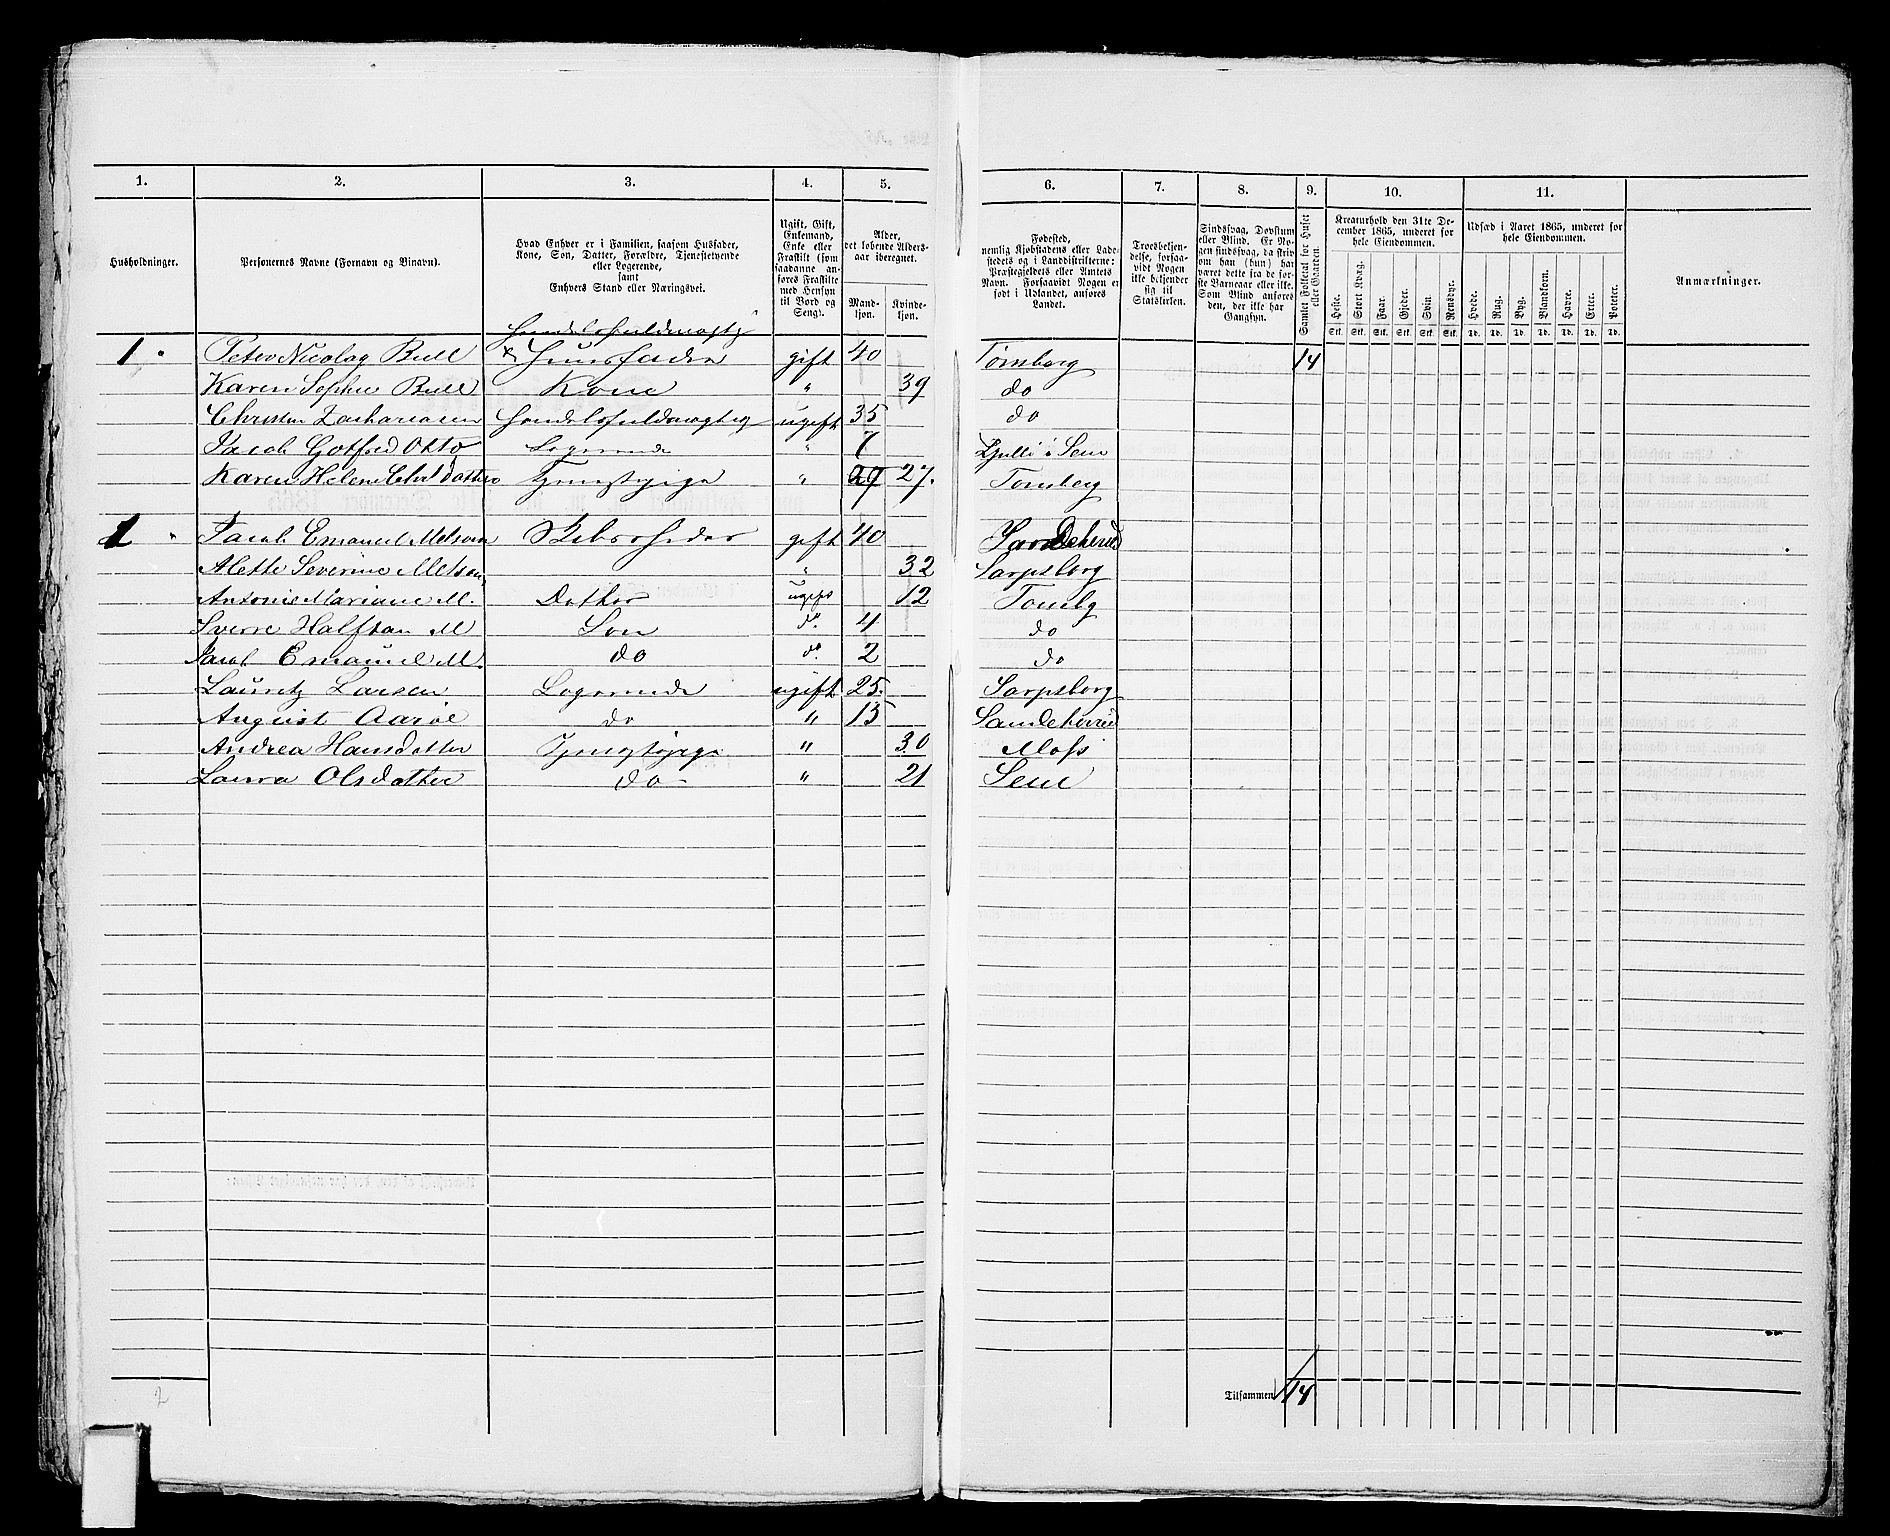 1. 2. 3. 4. 5. 6. 7. 8. 9. 10. 11.
Husholdninger.
Personernes Navne (Fornavn og Binavn).
Hvad Enhver er i Familien, saasom Husfader,
Kone, Søn, Datter, Forældre, Tjenestetyende
eller Logerende,
samt
Enhvers Stand eller Næringsvei.
Ugift, Gift,
Enkemand,
Enke eller
Fraskilt (som
saadanne an-
føres Fraskilte
med Hensyn
til Bord og
Seng).
Alder,
det løbende Alders-
aar iberegnet.
Mand-
kjøn.
Kvinde-
kjøn.
Fødested,
nemlig Kjøbstadens eller Lade-
stedets og i Landdistrikterne:
Præstegjeldets eller Amtets
Navn. Forsaavidt Nogen er
født i Udlandet, anføres
Landet.
Troesbekjen-
delse, forsaa-
vidt Nogen
ikke bekjender
sig til
Statskirken.
Sindssvag, Døvstum
eller Blind. Er No-
gen sindssvag, da skriv
om han (hun) har
været dette fra de før-
ste Barneaar eller ikke.
Som Blind anføres
den, der ikke har
Gangsyn.
Samlet Folketal for Huset
eller Gaarden.
Kreaturhold den 31te De-
cember 1865, underet for
hele Eiendommen.
Heste. Stort Kvæg. Faar. Gjeder. Svin. Rensdyr.
Stk. Stk. Stk. Stk. Stk. Stk.
Udsæd i Aaret 1865, underet for
hele Eiendommen.
Hvede. Rug. Byg. Blandkorn. Havre. Erter. Poteter.
Td. Td. Td. Td. Td. Td. Td.
Anmærkninger.
Handelsfuldmægtig
1. Peter Nicolay Bull x Huusfader gift 40 Tønsberg 14
Karen Sophie Bull Kone " 39 do
Christen Zachariasen Handelsfuldmægtig ugift 35 do
Jacob Gotfred Otto Logerende " 7 i Sem
Karen Helene Chr.datter Tjenestepige " 27. Tønsberg
1 " Jacob Emanuel Melsom Skibsrheder gift 40 Sandeherred
Alette Severine Melsom " 32 Sarpsborg
Antonie Mariane M. Datter ugift 12 Tønsbg
Sverre Halfdan M Søn do. 4 do
Jacob Emanuel M. do do. 2 do
Lauritz Larsen Logerende ugift 25. Sarpsborg
August Aarøe do " 15 Sandeherred
Andrea Hansdatter Tjenestepige " 30 Moss
Laura Olsdatter do " 21 Sem
Tilsammen 14
2